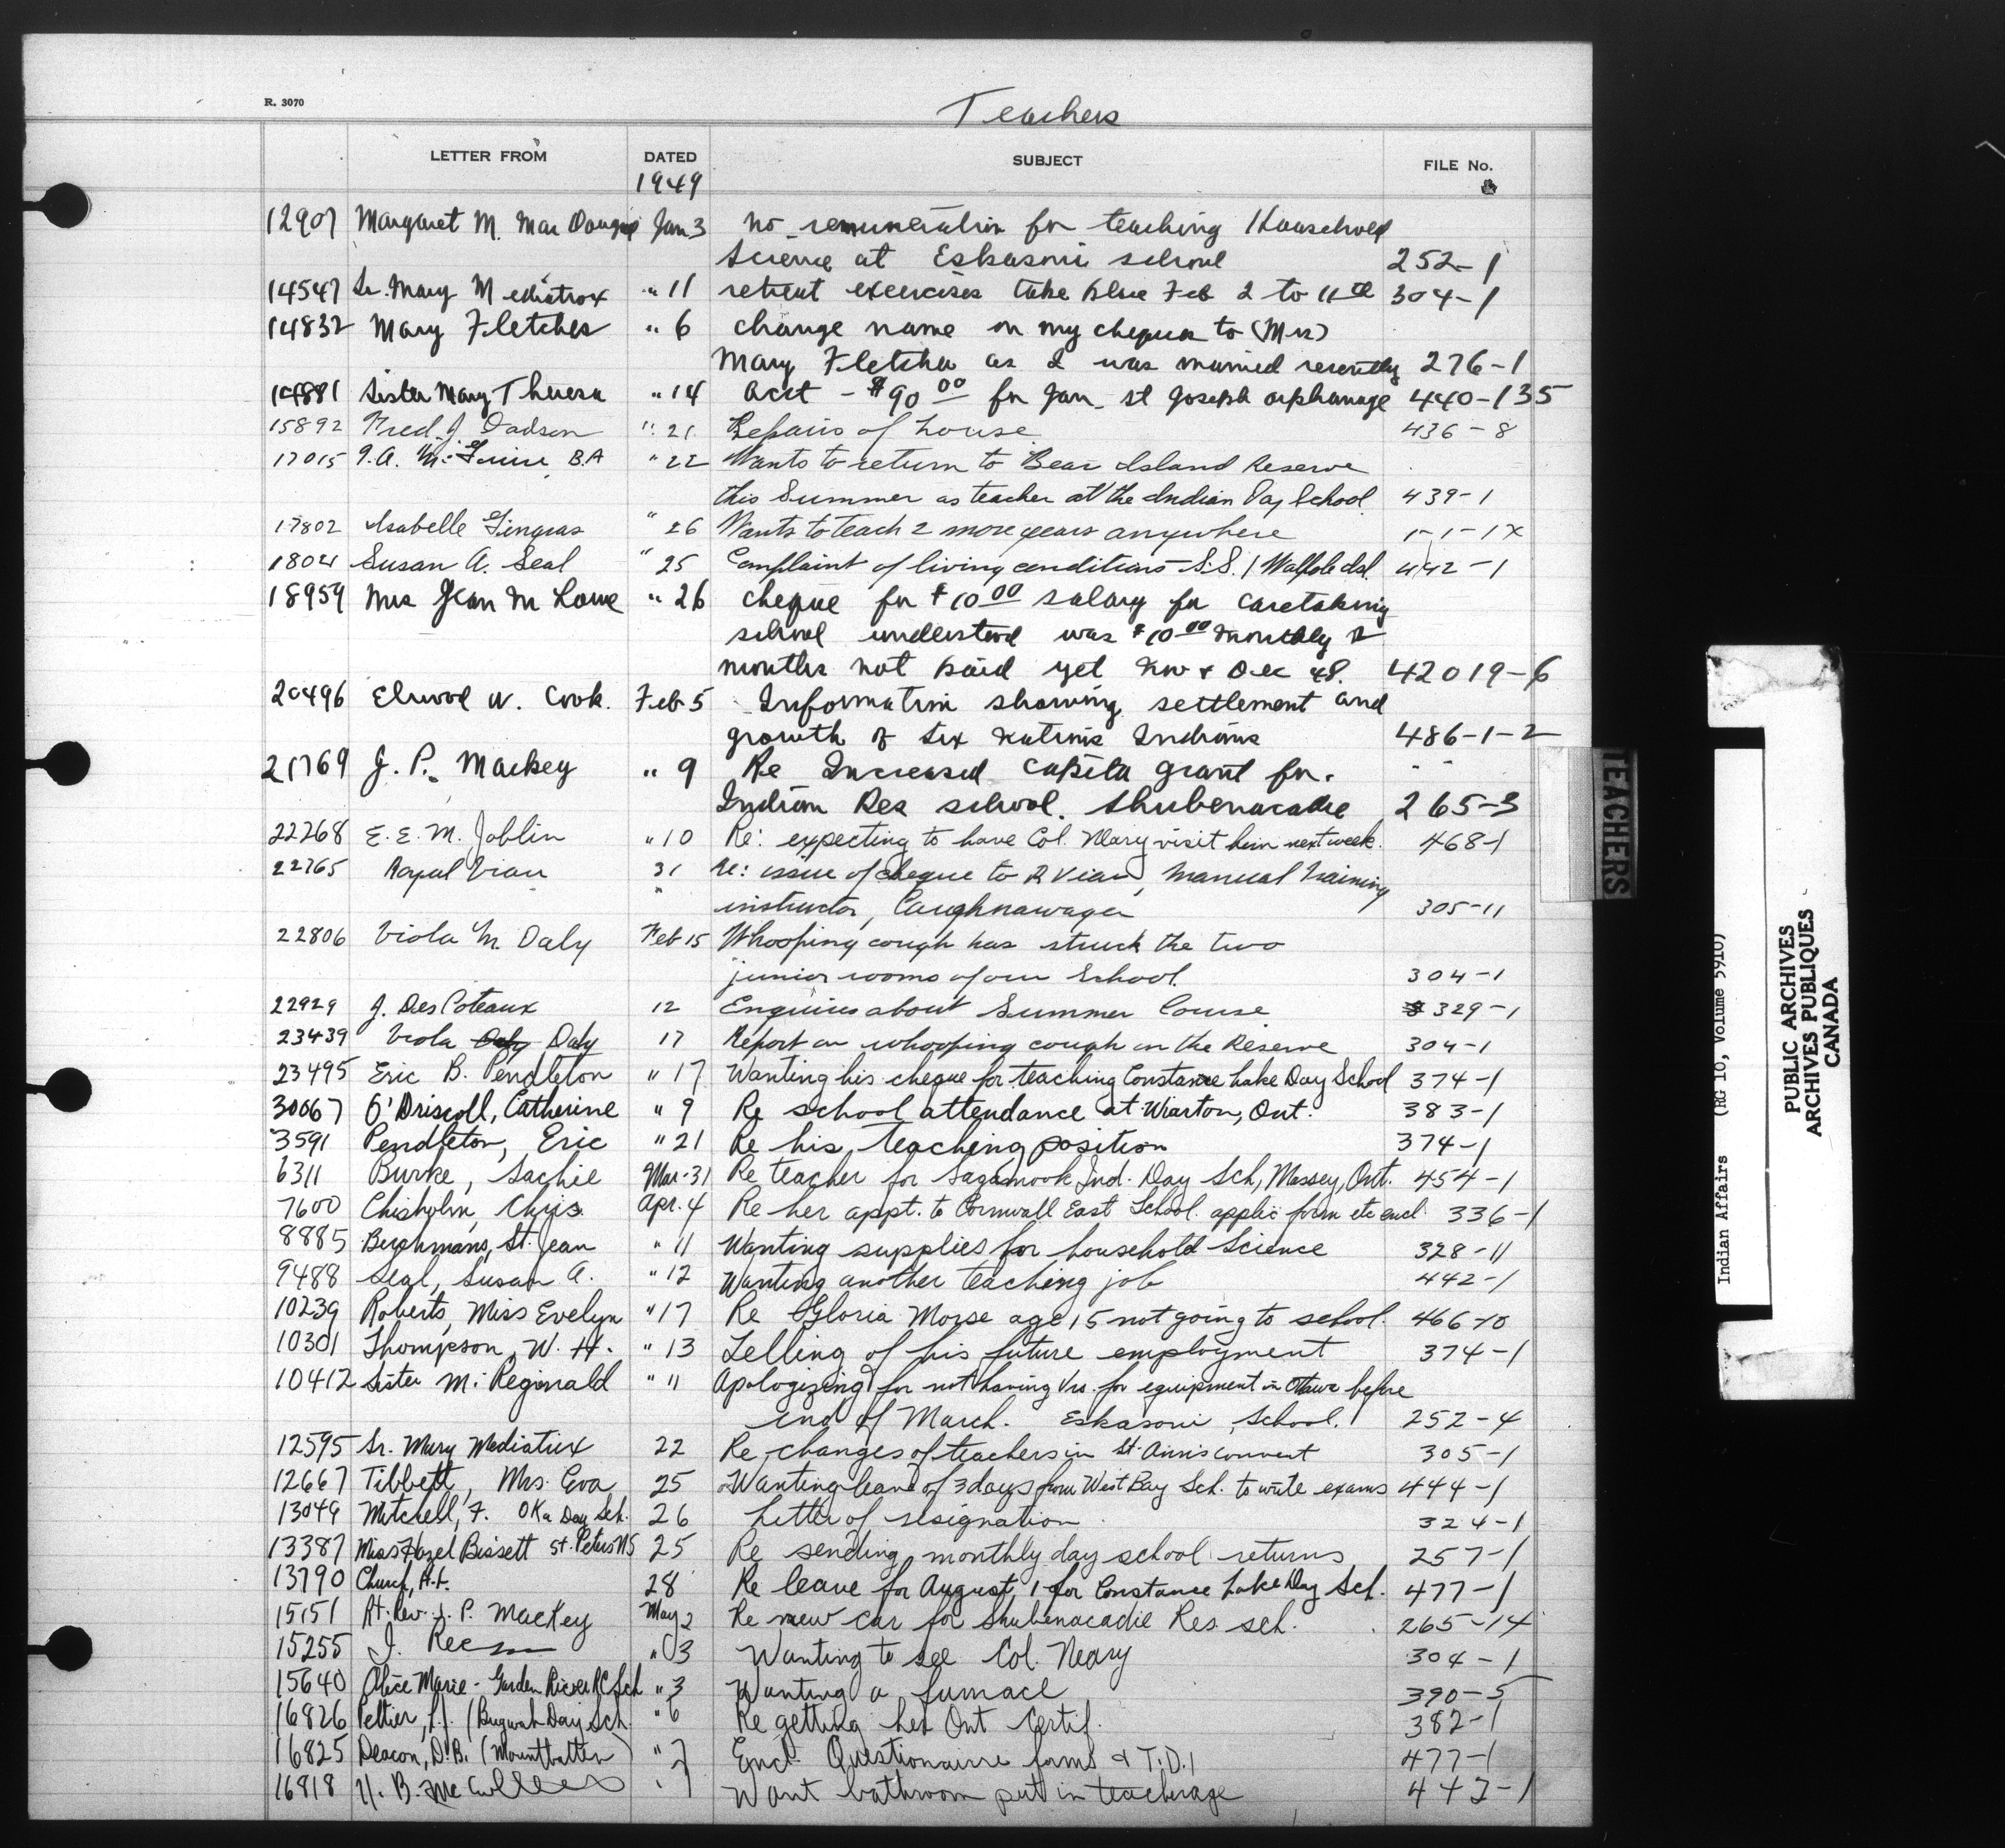 R. 3070
Teachers
LETTER FROM DATED SUBJECT FILE No.
1949
12907 Margaret M. Mac Dougall Jan 3 no remuneration for teaching Household
Science at Eskasoni school 252-1
14547 Sr. Mary Mediatrix " 11 retreat exercises take place Feb 2 to 11th 304-1
14832 Mary Fletcher " 6 change name on my cheques to (Mrs)
Mary Fletcher as I was married recently 276-1
14881 Sister Mary Theresa " 14 acct - $90 00 for Jan St Joseph orphanage 440-135
15892 Fred. J. Dadson " 21 Repairs of house 436-8
17015 B.A " 22 Wants to return to Bear Island Reserve
this Summer as teacher at the Indian Day School 439-1
17802 Isabelle Gingras " 26 Wants to teach 2 more years anywhere 1-1-1X
18021 Susan A. Seal " 25 Complaint of living conditions - S.S. 1 Walpole Isl. 442-1
18959 Mrs Jean M Lowe " 26 cheque for $10 00 salary for caretaking
school understood was $10 00 monthly 2
months not paid yet Nov + Dec 48. 42019-6
20496 Elwood W. Cook. Feb 5 Information showing settlement and
growth of Six Nations Indians 486-1-2
21769 J. P. Mackey " 9 Re Increased capita grant for
Indian Res school. Shubenacadie 265-3
22268 E. E. M. Joblin " 10 Re: expecting to have Col. Neary visit him next week. 468-1
22765 Royal Vian 31 Re: issue of cheque to R Vian, Manual Training
" instructor, Caughnawaga 305-11
22806 Viola M. Daly Feb 15 Whooping cough has struck the two
junior rooms of our School. 304-1
22929 J. DesCoteaux 12 Enquires about Summer Course 329-1
23439 Viola Daly 17 Report on whooping cough on the Reserve 304-1
23495 Eric B. Pendleton " 17 Wanting his cheque for teaching Constance Lake Day School 374-1
30067 O'Driscoll, Catherine " 9 Re school attendance at Wiarton, Ont. 383-1
3591 Pendleton, Eric " 21 Re his teaching position 374-1
6311 Burke, Sachie Mar. 31 Re teacher for Sagamook Ind. Day Sch, Massey, Ont. 454-1
7600 Chisholm, Chris. Apr. 4 Re her appt. to Cornwall East School. applic form etc encl. 336-1
8885 Berchmans, St. Jean " 11 Wanting supplies for household Science 328-11
9488 Seal, Susan A. " 12 Wanting another teaching job 442-1
10239 Roberts, Miss Evelyn " 17 Re Gloria Morse age 15 not going to school. 466-10
10301 Thompson, W. H. " 13 Telling of his future employment 374-1
10412 Sister M. Reginald " 11 Apologizing for not having Vrs. for equipment in Ottawa before
end of March. Eskasoni School. 252-4
12595 Sr. Mary Mediatrix 22 Re changes of teachers in St. Ann's convent 305-1
12667 Tibbett, Mrs. Eva 25 Wanting leave of 3 days from West Bay Sch. to write exams 444-1
13049 Mitchell, F. Oka Day Sch. 26 Letter of resignation 324-1
13387 Miss Hazel Bissett St. Peters NS 25 Re sending monthly day school returns 257-1
13790 Church, 28 Re leave for August 1 for Constance Lake Day Sch. 477-1
15151 Rt. Rev. J. P. Mackey May 2 Re new car for Shubenacadie Res. sch. 265-14
15255 " 3 Wanting to see Col. Neary 304-1
15640 Alice Marie - Garden River RC Sch " 3 Wanting a furnace 390-5
16826 Peltier, (Buzwah Day Sch. " 6 Re getting her Ont Certif. 382-1
16825 Deacon, D.B. (Mountbatten) " 7 Encl. Questionairre forms + T.D.1 477-1
16818 " 7 Want bathroom put in teacherage 447-1
TEACHERS
Indian Affairs (RG 10, Volume 5910)
PUBLIC ARCHIVES
ARCHIVES PUBLIQUES
CANADA